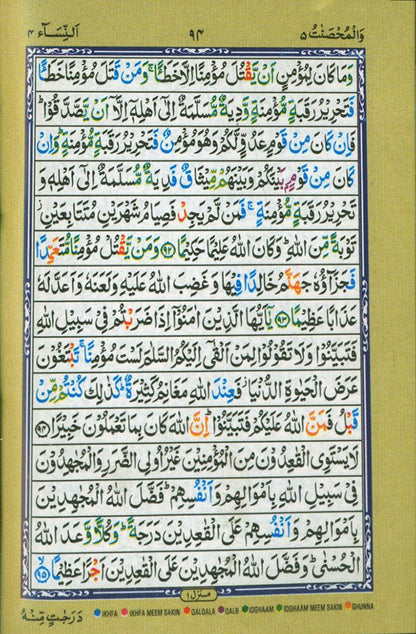 وَالْمُحْصَنٰتُ ٥
٩٤
اَلنِّسَآء ٤
وَمَا كَانَ لِمُؤْمِنٍ اَنْ يَّقْتُلَ مُؤْمِنًا اِلَّا خَطَـًٔا ۚ وَمَنْ قَتَلَ مُؤْمِنًا خَطَـًٔا
فَتَحْرِيْرُ رَقَبَةٍ مُّؤْمِنَةٍ وَّدِيَةٌ مُّسَلَّمَةٌ اِلٰٓى اَهْلِهٖٓ اِلَّآ اَنْ يَّصَّدَّقُوْا ؕ
فَاِنْ كَانَ مِنْ قَوْمٍ عَدُوٍّ لَّكُمْ وَهُوَ مُؤْمِنٌ فَتَحْرِيْرُ رَقَبَةٍ مُّؤْمِنَةٍ ؕ وَاِنْ
كَانَ مِنْ قَوْمٍۢ بَيْنَكُمْ وَبَيْنَهُمْ مِّيْثَاقٌ فَدِيَةٌ مُّسَلَّمَةٌ اِلٰٓى اَهْلِهٖ وَ
تَحْرِيْرُ رَقَبَةٍ مُّؤْمِنَةٍ ۚ فَمَنْ لَّمْ يَجِدْ فَصِيَامُ شَهْرَيْنِ مُتَتَابِعَيْنِ ؗ
تَوْبَةً مِّنَ اللّٰهِ ؕ وَكَانَ اللّٰهُ عَلِيْمًا حَكِيْمًا ﴿٩٢﴾ وَمَنْ يَّقْتُلْ مُؤْمِنًا مُّتَعَمِّدًا
فَجَزَآؤُهٗ جَهَنَّمُ خٰلِدًا فِيْهَا وَغَضِبَ اللّٰهُ عَلَيْهِ وَلَعَنَهٗ وَاَعَدَّ لَهٗ
عَذَابًا عَظِيْمًا ﴿٩٣﴾ يٰٓاَيُّهَا الَّذِيْنَ اٰمَنُوْٓا اِذَا ضَرَبْتُمْ فِيْ سَبِيْلِ اللّٰهِ
فَتَبَيَّنُوْا وَلَا تَقُوْلُوْا لِمَنْ اَلْقٰٓى اِلَيْكُمُ السَّلٰمَ لَسْتَ مُؤْمِنًا ۚ تَبْتَغُوْنَ
عَرَضَ الْحَيٰوةِ الدُّنْيَا ؗ فَعِنْدَ اللّٰهِ مَغَانِمُ كَثِيْرَةٌ ؕ كَذٰلِكَ كُنْتُمْ مِّنْ
قَبْلُ فَمَنَّ اللّٰهُ عَلَيْكُمْ فَتَبَيَّنُوْا ؕ اِنَّ اللّٰهَ كَانَ بِمَا تَعْمَلُوْنَ خَبِيْرًا ﴿٩٤﴾
لَا يَسْتَوِى الْقٰعِدُوْنَ مِنَ الْمُؤْمِنِيْنَ غَيْرُ اُولِى الضَّرَرِ وَالْمُجٰهِدُوْنَ
فِيْ سَبِيْلِ اللّٰهِ بِاَمْوَالِهِمْ وَاَنْفُسِهِمْ ؕ فَضَّلَ اللّٰهُ الْمُجٰهِدِيْنَ
بِاَمْوَالِهِمْ وَاَنْفُسِهِمْ عَلَى الْقٰعِدِيْنَ دَرَجَةً ؕ وَكُلًّا وَّعَدَ اللّٰهُ
الْحُسْنٰى ؕ وَفَضَّلَ اللّٰهُ الْمُجٰهِدِيْنَ عَلَى الْقٰعِدِيْنَ اَجْرًا عَظِيْمًا ﴿٩٥﴾
منزل ١
دَرَجٰتٍ مِّنْهُ
IKHFA IKHFA MEEM SAKIN QALQALA QALB IDGHAAM IDGHAAM MEEM SAKIN GHUNNA